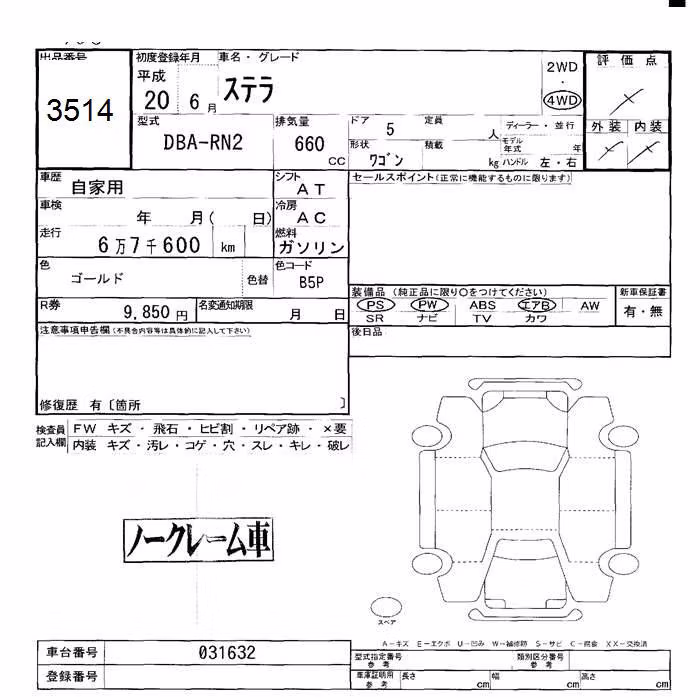 出品番号
3514
初度登録年月
平成
20 6 月
車名・グレード
ステラ
2WD
・
4WD
評価点
外装 内装
型式
DBA-RN2
排気量
660
CC
ドア
5
定員
人
形状
ワゴン
積載
kg
ディーラー・並行
モデル
年式
年
ハンドル 左・右
車歴
自家用
シフト
AT
車検
年 月( 日)
冷房
AC
走行
6万7千600 km
燃料
ガソリン
色
ゴールド
色替
色コード
B5P
R券
9,850 円
名変通知期限
月 日
セールスポイント(正常に機能するものに限ります)
装備品(純正品に限り○をつけてください)
PS PW ABS エアB AW
SR ナビ TV カワ
新車保証書
有・無
後日品
注意事項申告欄(不具合内容等は具体的に記入して下さい)
修復歴 有〔箇所 〕
検査員
記入欄
FW キズ・飛石・ヒビ割・リペア跡・×要
内装 キズ・汚レ・コゲ・穴・スレ・キレ・破レ
ノークレーム車
スペア
A-キズ E-エクボ U-凹み W-補修跡 S-サビ C-腐食 XX-交換済
車台番号
031632
登録番号
型式指定番号
参考
類別区分番号
参考
車庫証明用
参考
長さ cm
幅 cm
高さ cm